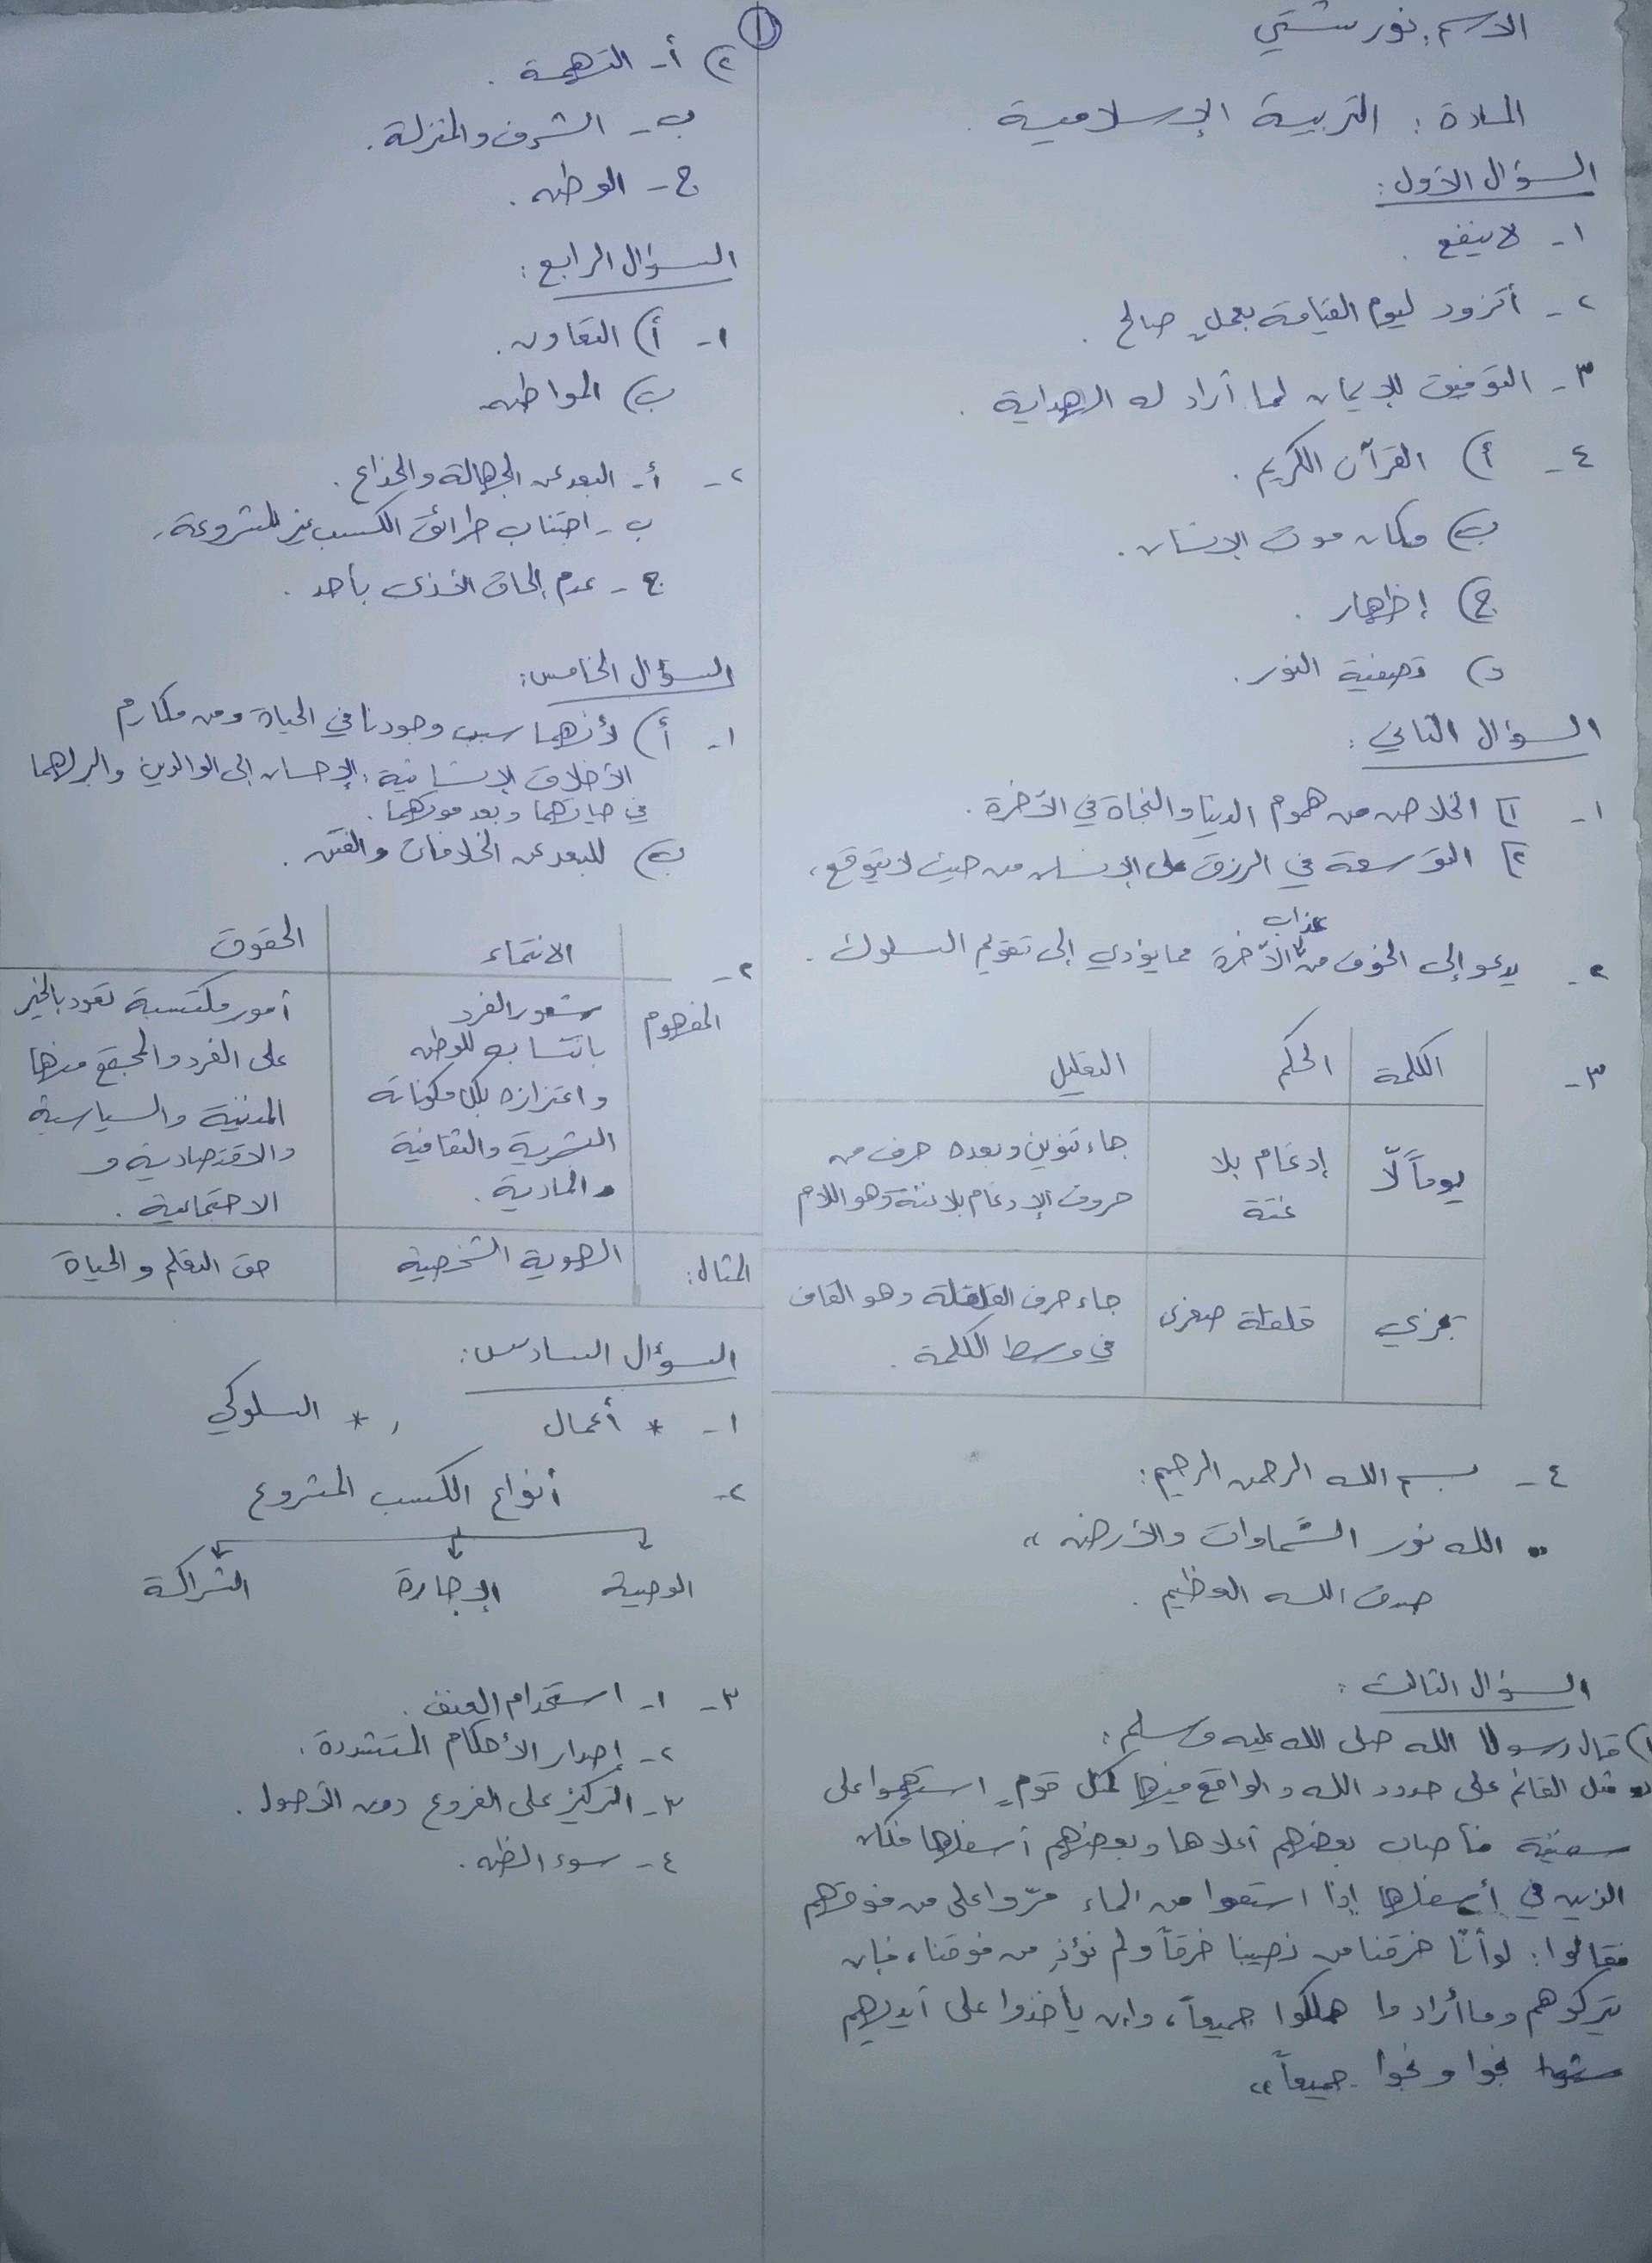 الاسم: نور شتي
المادة: التربية الإسلامية.
السؤال الأول:
١- لا ينفع.
٢- أتزود ليوم القيامة بعملٍ صالح.
٣- التوفيق للإيمان لما أراد له الهداية.
٤- أ) القرآن الكريم.
ب) مكان موت الإنسان.
ج) إظهار.
د) تصفية النور.
السؤال الثاني:
١- ١] الخلاص من هموم الدنيا والنجاة في الآخرة.
٢] التوسعة في الرزق على الإنسان من حيث لا يتوقع.
٢- يدعو إلى الخوف من عذاب الآخرة مما يؤدي إلى تقويم السلوك.
٣- الكلمة الحكم التعليل
يوماً لّا إدغام بلا غنة جاء تنوين وبعده حرف من
حروف الإدغام بلا غنة وهو اللام
تجزي قلقلة صغرى جاء حرف القلقلة وهو القاف
في وسط الكلمة.
٤- بسم الله الرحمن الرحيم:
"الله نور السَّماوات والأرض"
صدق الله العظيم.
السؤال الثالث:
١) قال رسول الله صلى الله عليه وسلم:
"مثل القائم على حدود الله والواقع فيها كمثل قومٍ استهموا على
سفينة فأصاب بعضهم أعلاها وبعضهم أسفلها فكان
الذين في أسفلها إذا استقوا من الماء مرّوا على من فوقهم
فقالوا: لو أنّا خرقنا من نصيبنا خرقاً ولم نؤذِ من فوقنا، فإن
يتركوهم وما أرادوا هلكوا جميعاً، وإن يأخذوا على أيديهم
نجوا ونجوا جميعاً"
١
٢) أ- التهمة.
ب- الشرف والمنزلة.
ج- الوطن.
السؤال الرابع:
١- أ) التعاون.
ب) المواطن
٢- أ- البعد عن الجهالة والخداع.
ب- اجتناب طرائق الكسب غير المشروعة.
ج- عدم إلحاق الأذى بأحد.
السؤال الخامس:
١- أ) لأنهما سبب وجودنا في الحياة ومن مكارم
الأخلاق الإنسانية: الإحسان إلى الوالدين والبر لهما
في حياتهما وبعد موتهما.
ب) للبعد عن الخلافات والفتن.
٢- الانتماء الحقوق
المفهوم شعور الفرد أمور مكتسبة تعود بالخير
بانتسابه للوطن على الفرد والمجتمع منها
واعتزازه بكل مكوناته المدنية والسياسية
البشرية والثقافية والاقتصادية و
والمادية. الاجتماعية.
المثال: الهوية الشخصية حق التعلم والحياة
السؤال السادس:
١- * أعمال , * السلوكي
٢- أنواع الكسب المشروع
الوصية الإجارة الشراكة
٣- ١- استخدام العنف.
٢- إصدار الأحكام المتشددة.
٣- التركيز على الفروع دون الأصول.
٤- سوء الظن.